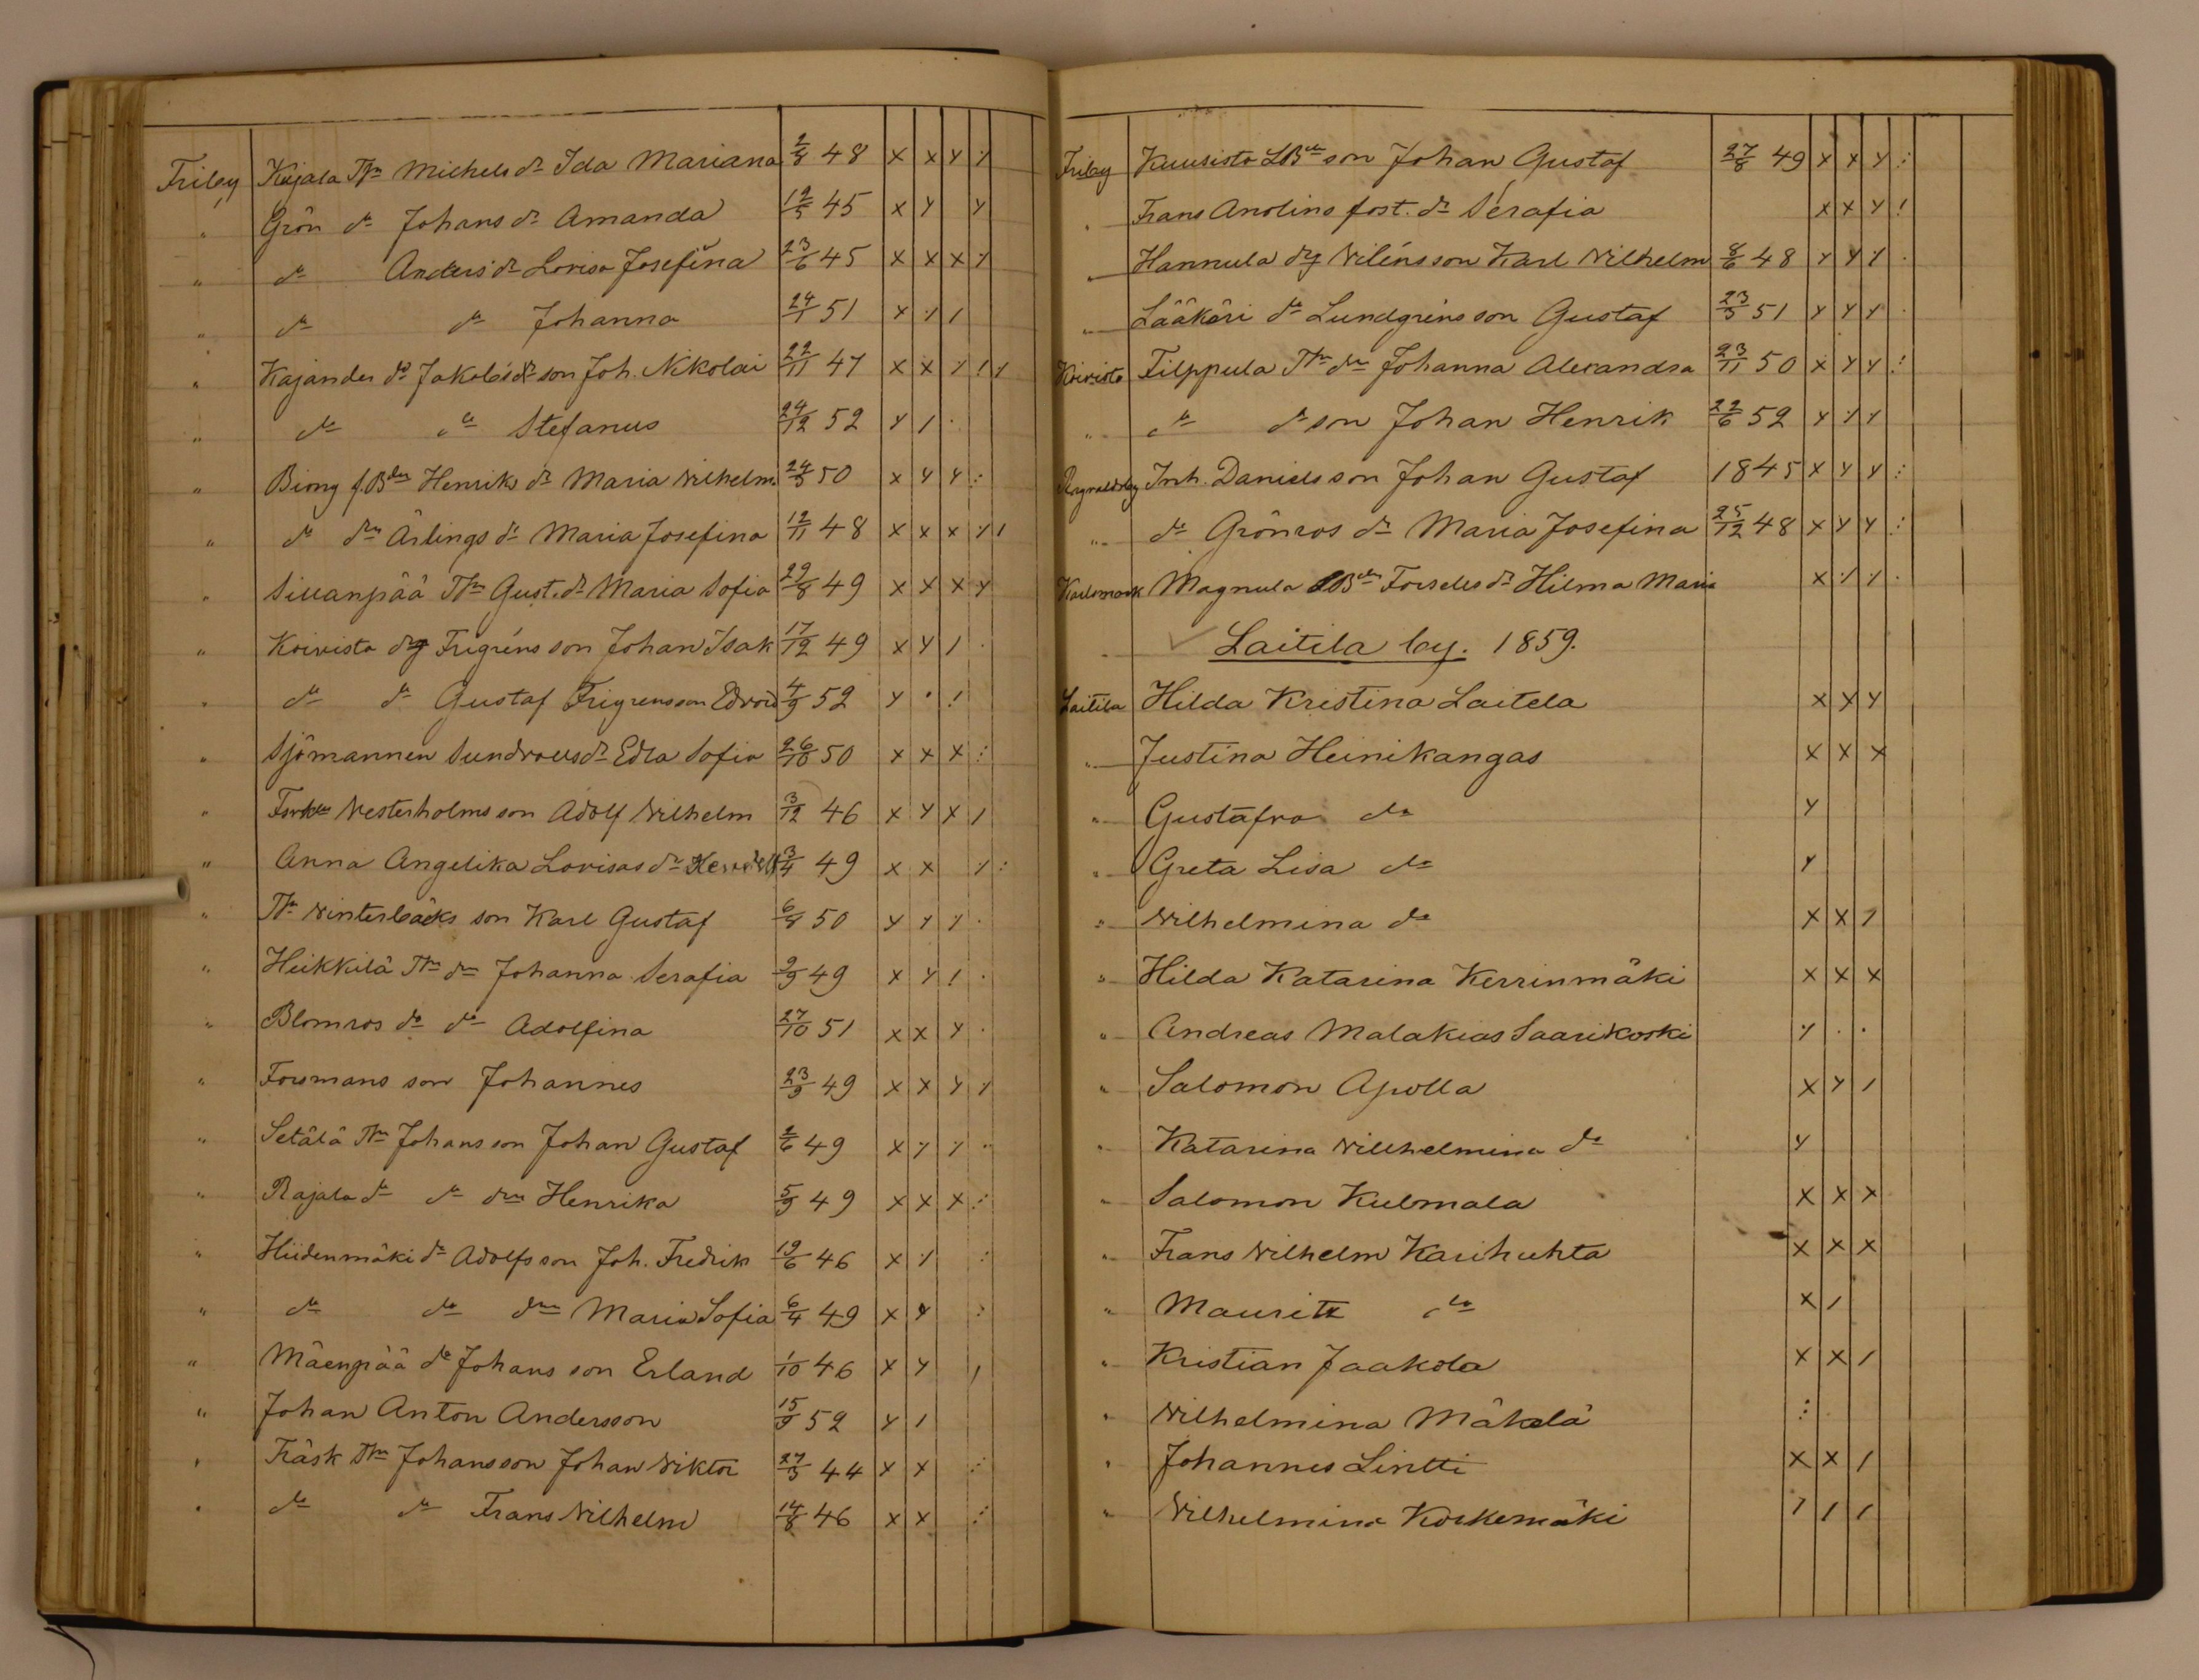 Friby Kajala Thr Michels dr Ida Mariana 2/8 48 x x y ⁒
" Grön do Johans dr Amanda 12/5 45 x y y
" do Anders dr Lovisa Josefina 23/6 45 x x x ⁒
" do do Johanna 24/1 51 x ⁒ /
" Kajander do Jakobs dr son Joh. Nikolai 22/11 47 x x ⁒ ! y
" do do Stefanus 24/12 52 y / .
" Biong f.Bden Henriks dr Maria Vilhelm. 24/5 50 x y y :
" do drn Ärlings dr Maria Josefina 12/11 48 x x x ⁒ /
" Siuanpää Thr Gust. dr Maria Sofia 29/8 49 x x x y
" Koivisto drg Frigréns son Johan Isak 17/12 49 x y / .
" do do Gustaf Frigrens son Edvard 4/9 52 y . !
" Sjömannen Sundvalls dr Edla Sofia 26/10 50 x x x :
" Westerholms son Adolf Vilhelm 3/12 46 x y x /
" Anna Angelika Lovisas dr 3/4 49 x x ⁒ :
" Thr Vinterbäcks son Karl Gustaf 6/8 50 y y ⁒ .
" Heikkilä Thr dr Johanna Serafia 9/9 49 x y ! .
" Blomros do do Adolfina 27/10 51 x x y .
" Forsmans son Johannes 23/9 49 x x y ⁒
" Setälä Thr Johans son Johan Gustaf 2/6 49 x ⁒ ⁒ ..
" Rajala do do drn Henrika 5/9 49 x x x :
" Hiidenmäki do Adolfs son Joh. Fredrik 19/6 46 x ⁒ :
" do do drn Maria Sofia 6/4 49 x y :
" Mäenpää do Johans son Erland 1/10 46 x y /
" Johan Anton Andersson 15/9 52 y /
" Träsk Thr Johansson Johan Viktor 27/5 44 x x :
" do do Frans Vilhelm 14/8 46 x x :
Friby Kuusisto LBde son Johan Gustaf 27/8 49 x x y :
" Frans Anolins fost. dr Serafia x x y !
" Hannula drg Viléns son Karl Vilhelm 8/6 48 y y ⁒ .
" Lääkäri do Lundgréns son Gustaf 23/5 51 y y y .
Koivisto Filppula Thr drn Johanna Alexandra 23/11 50 x y y :
" do do son Johan Henrik 22/6 52 y ⁒ ⁒
Ragnaldsby Inh. Daniels son Johan Gustaf 1845 x y y :
" do Grönros dr Maria Josefina 25/12 48 x y y :
Karlsmark Magnula Bden Forsells dr Hilma Maria x ⁒ ⁒ .
" Laitila by. 1859.
Laitila Hilda Kristina Laitela x y y
" Justina Heinikangas x x x
" Gustafva do y
" Greta Lisa do y
" Vilhelmina do x x /
" Hilda Katarina Kerrinmäki x x x
" Andreas Malakias Saarikoski ⁒ . .
" Salomon Apolla x y /
" Katarina Villhelmina do y
" Salomon Kulmala x x x
" Frans Vilhelm Karihuhta x x x
" Mauritz do x /
" Kristian Jaakola x x /
" Vilhelmina Mäkelä :
" Johannes Lintti x x /
" Vilhelmina Korkemäki / / /